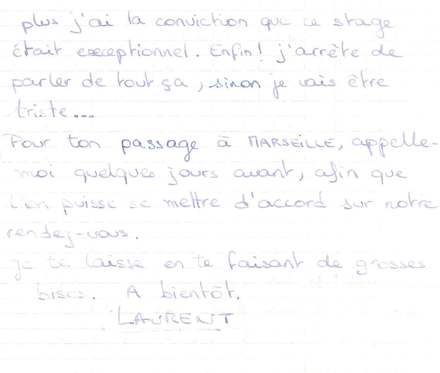 plus j'ai la conviction que ce stage
était exceptionnel. Enfin! j'arrête de
parler de tout ça, sinon je vais être
triste...
Pour ton passage à MARSEILLE, appelle-
moi quelques jours avant, afin que
l'on puisse se mettre d'accord sur notre
rendez-vous.
Je te laisse en te faisant de grosses
bises. A bientôt.
LAURENT